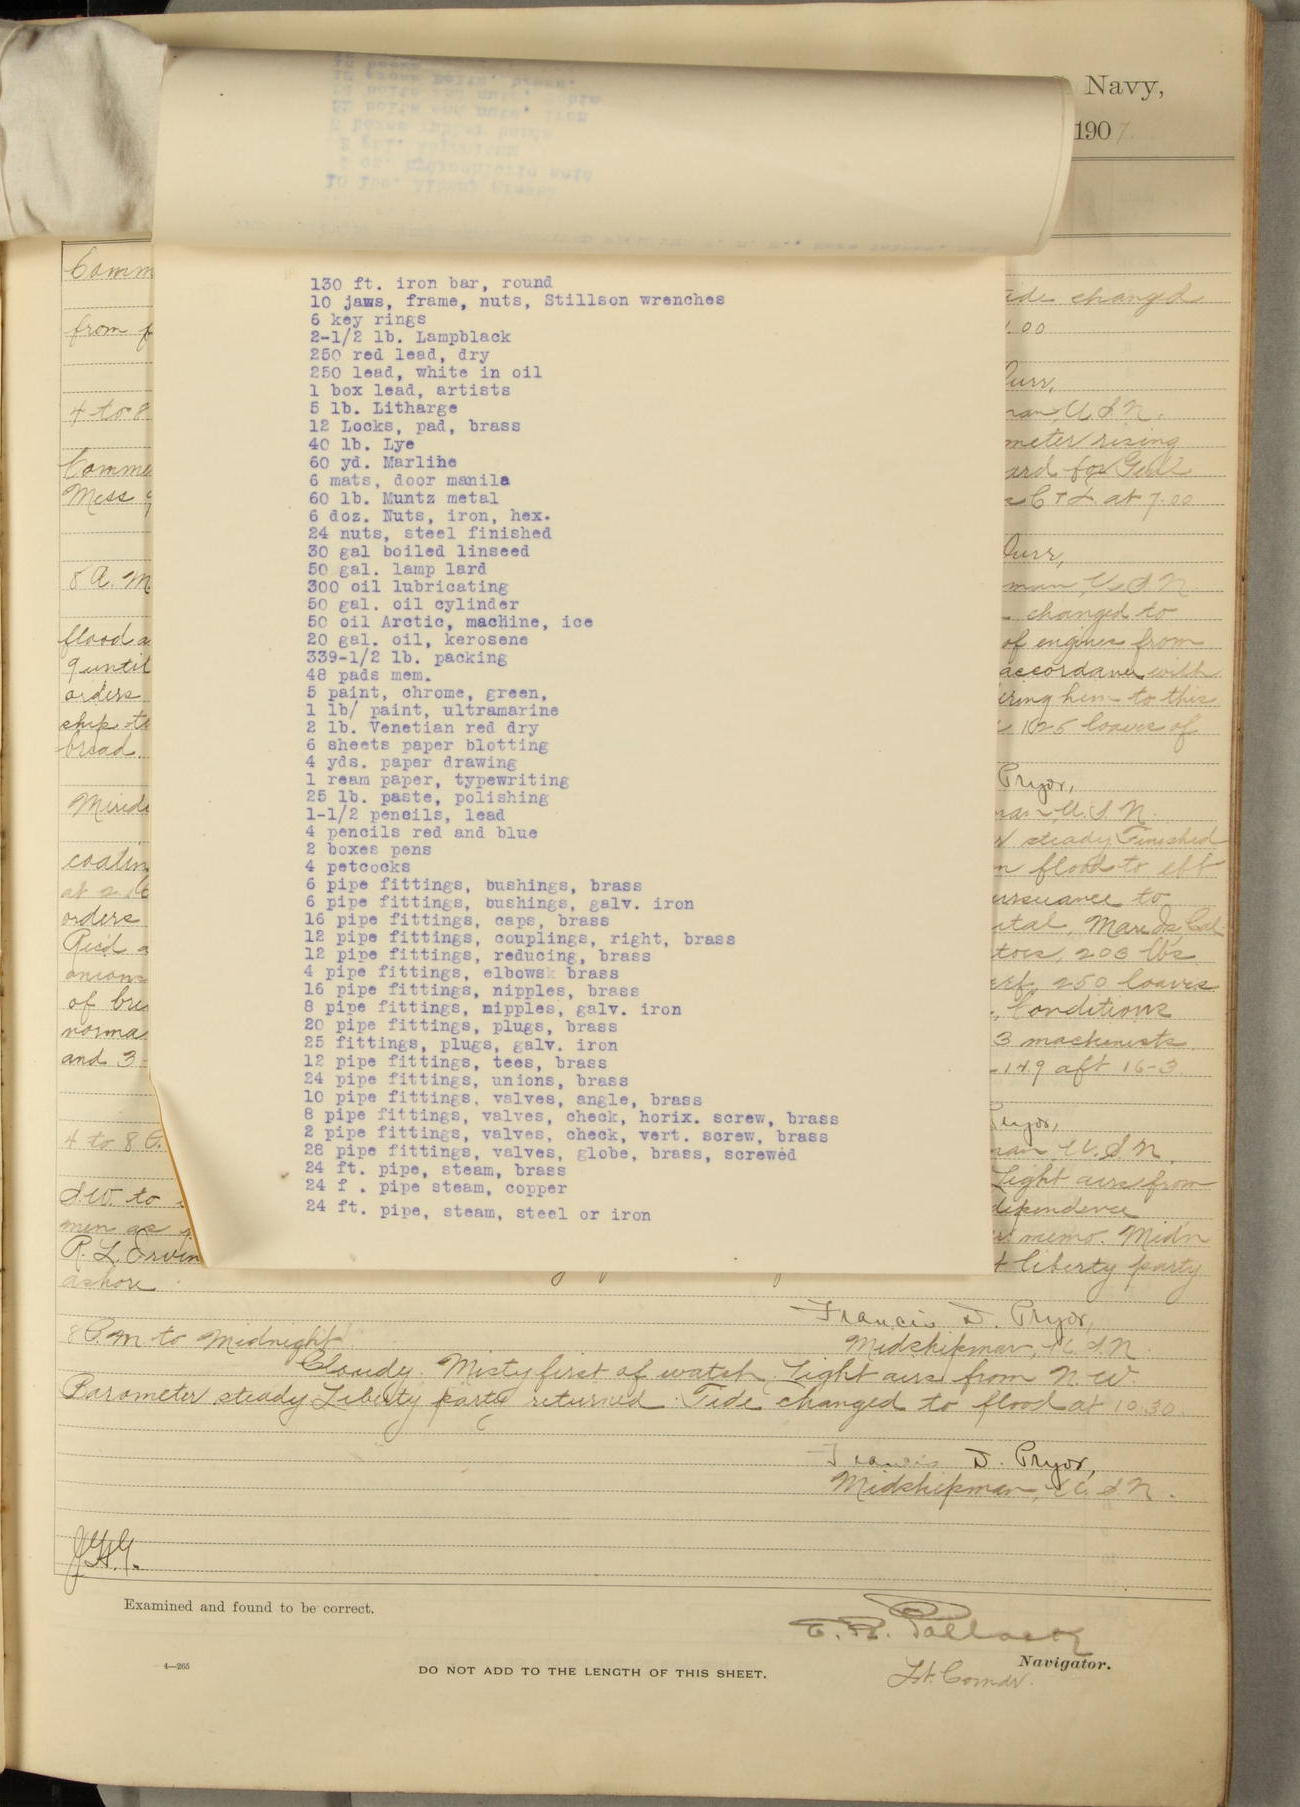 Navy,
1907
130 ft. iron bar, round
10 jaws, frame, nuts, Stillson wrenches
6 key rings
2-1/2 lb. Lampblack
250 red lead, dry
250 lead, white in oil
1 box lead, artists
5 lb. Litharge
12 Locks, pad, brass
40 lb. Lye
60 yd. Marline
6 mats, door manila
60 lb. Muntz metal
6 doz. Nuts, iron, hex.
24 nuts, steel finished
30 gal boiled linseed
50 gal. lamp lard
300 oil lubricating
50 gal. oil cylinder
50 oil Arctic, machine, ice
20 gal. oil, kerosene
339-1/2 lb. packing
48 pads mem.
5 paint, chrome, green,
1 lb/ paint, ultramarine
2 lb. Venetian red dry
6 sheets paper blotting
4 yds. paper drawing
1 ream paper, typewriting
25 lb. paste, polishing
1-1/2 pencils, lead
4 pencils red and blue
2 boxes pens
4 petcocks
6 pipe fittings, bushings, brass
6 pipe fittings, bushings, galv. iron
16 pipe fittings, caps, brass
12 pipe fittings, couplings, right, brass
12 pipe fittings, reducing, brass
4 pipe fittings, elbows brass
16 pipe fittings, nipples, brass
8 pipe fittings, nipples, galv. iron
20 pipe fittings, plugs, brass
25 fittings, plugs, galv. iron
12 pipe fittings, tees, brass
24 pipe fittings, unions, brass
10 pipe fittings, valves, angle, brass
8 pipe fittings, valves, check, horix. screw, brass
2 pipe fittings, valves, check, vert. screw, brass
28 pipe fittings, valves, globe, brass, screwed
24 ft. pipe, steam, brass
24 f . pipe steam, copper
24 ft. pipe, steam, steel or iron
from
changed
.00
4 to 8
U.S.N.
rising
Mess
at 7.00
8 A.M
U.S.N
changed to
flood
of engines from
until
accordance with
orders
him to this
ship
1025 loaves of
bread.
Pryor,
U.S.N.
steady Finished
flood to ebb
at
orders
Mare Is. Cal
Rec'd
203 lbs
250 loaves
of
Conditions
3 machinists
and 3
149 aft 16-3
4 to 8 P.
U.S.N.
Light airs from
S.W. to
men as
memo. Midn
R. L. Irvin
liberty party
ashore
Francis D. Pryor,
Midshipman, U.S.N.
8 P.M to Midnight
Cloudy. Misty first of watch. Light airs from N.W.
Barometer steady Liberty party returned. Tide changed to flood at 10.30.
Francis D. Pryor,
Midshipman, U.S.N.
Examined and found to be correct.
Navigator.
Lt. Comdr.
4—265
DO NOT ADD TO THE LENGTH OF THIS SHEET.